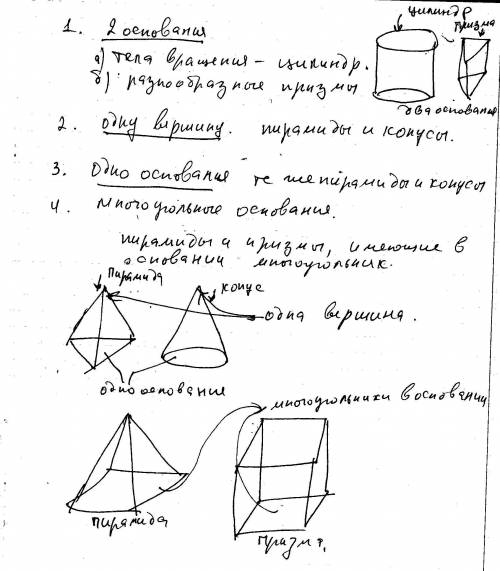 1. 2 основания
а) тела вращения – цилиндр.
б) разнообразные призмы
цилиндр
призма
два основания
2. одну вершину. пирамиды и конусы.
3. одно основания те же пирамиды и конусы
4. многоугольные основания.
пирамиды и призмы, имеющие в
основании многоугольник.
пирамида
конус
одна вершина.
одно основание
многоугольники в основании
пирамида
призма